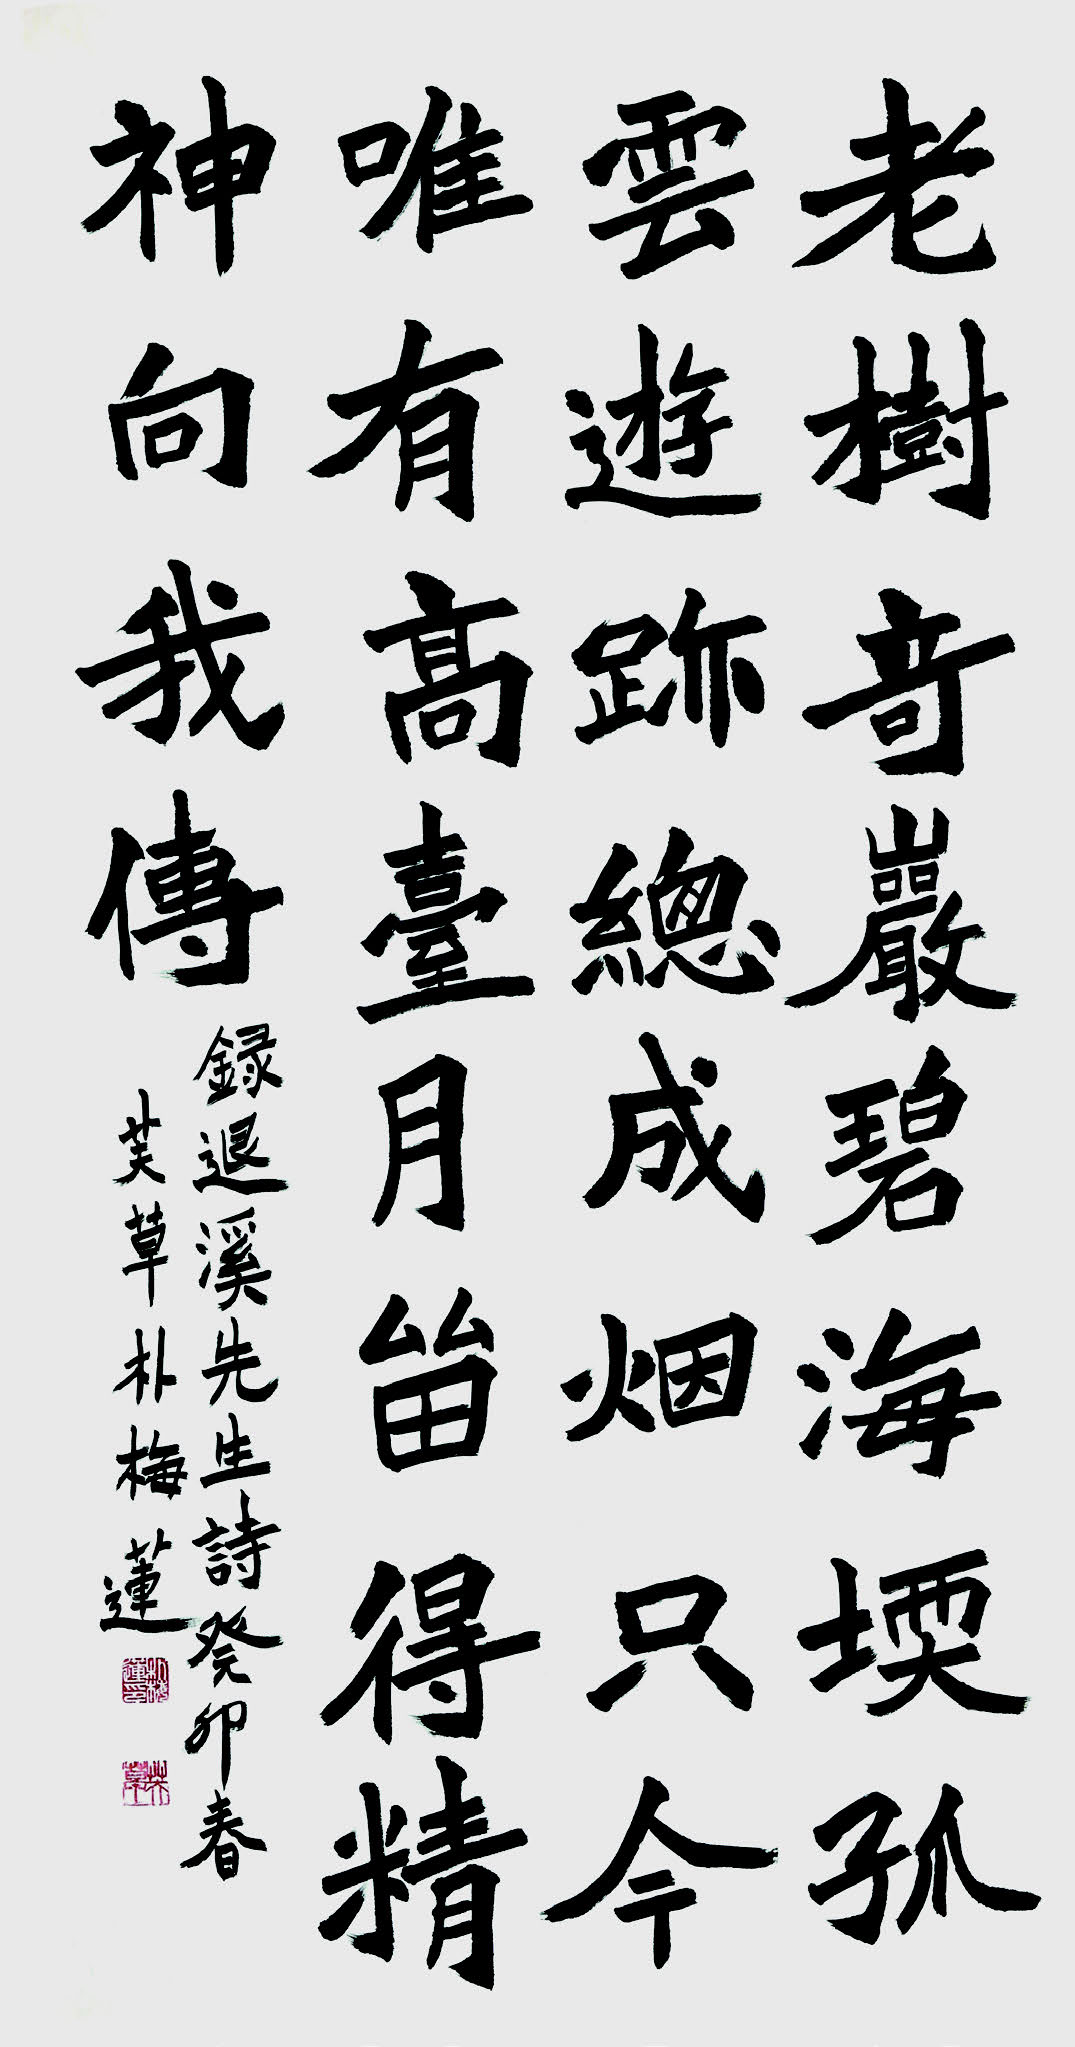 老樹奇巖碧海堧孤
雲遊跡總成烟只今
唯有高臺月畱得精
神向我傳
録退溪先生詩癸卯春
芙草朴梅蓮